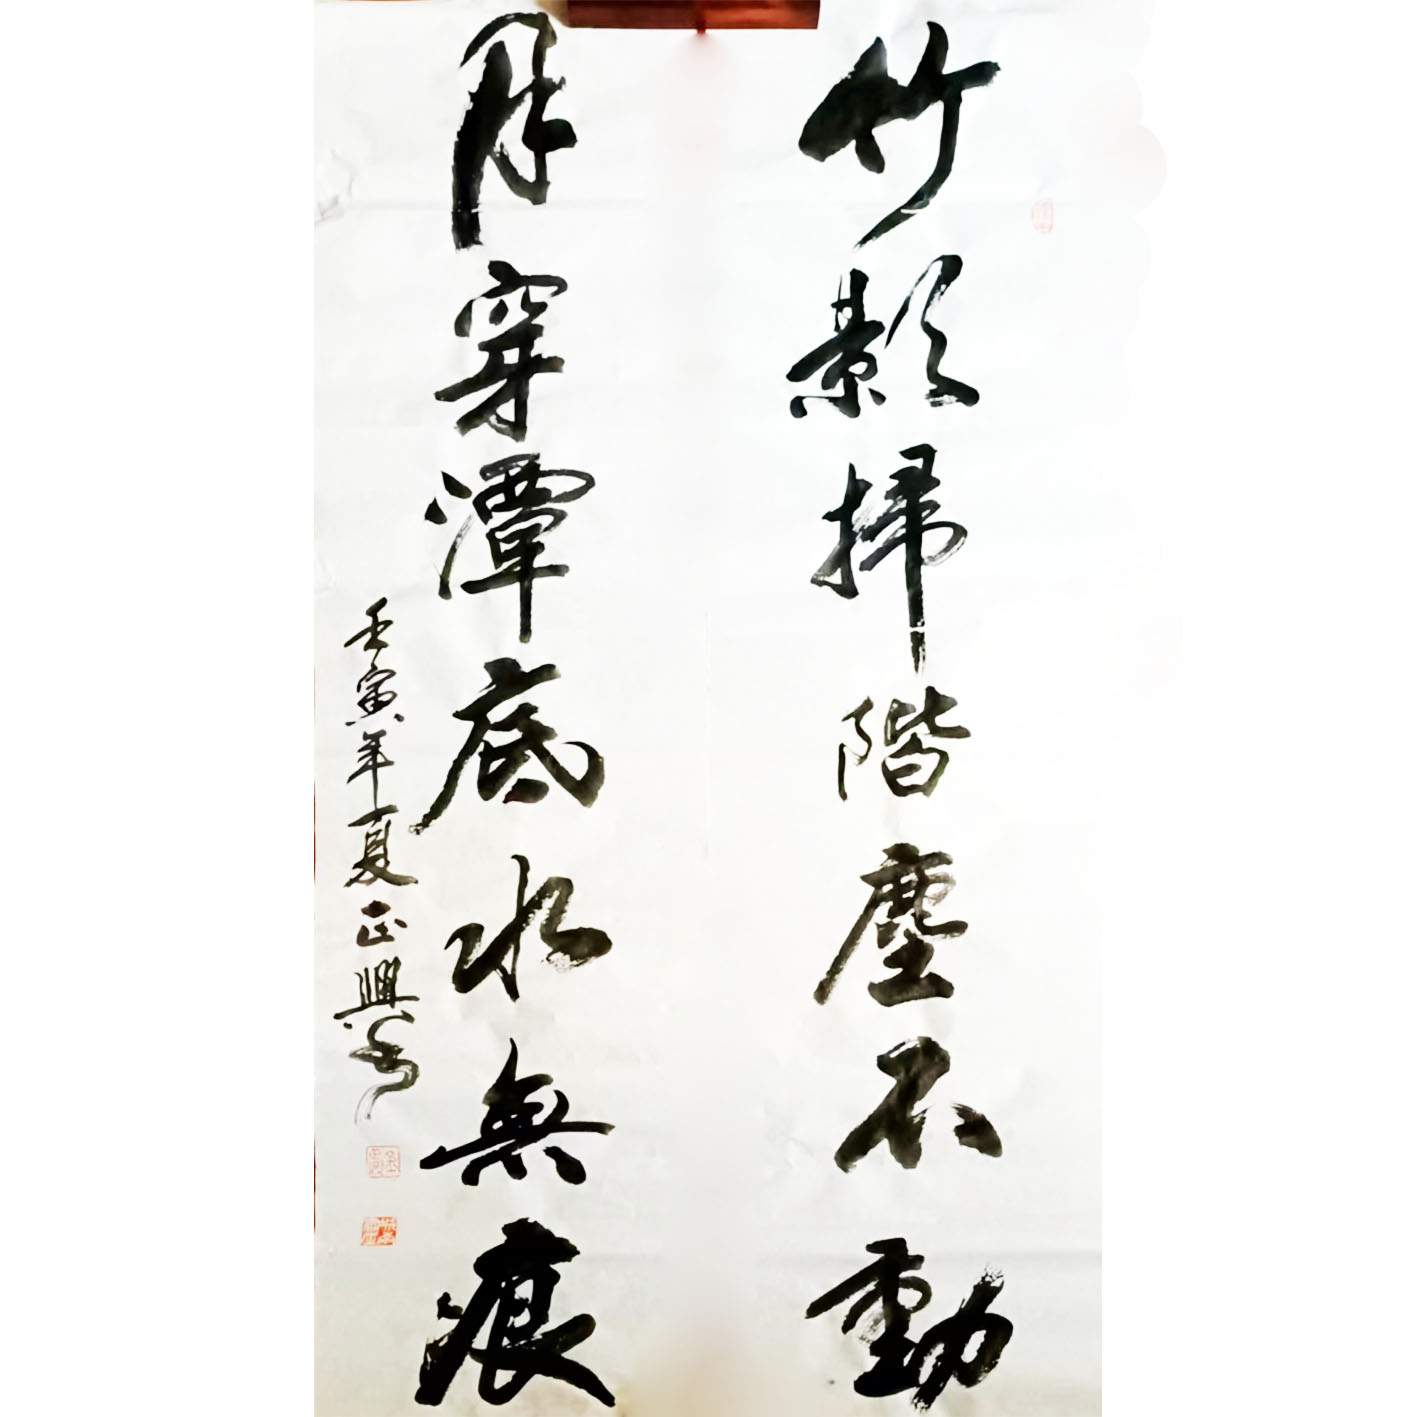 竹影掃階塵不動
月穿潭底水無痕
壬寅年夏正興書